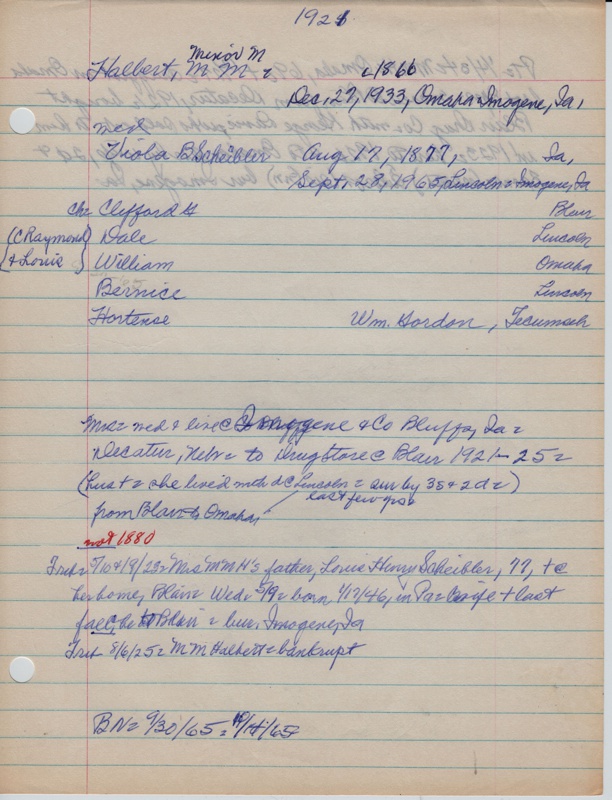 1921
Minor M
Halbert, M. M. = c1866
Dec, 27, 1933, Omaha = Imogene, Ia,
med
Viola B Scheibler Aug 17, 1877, Ia,
Sept, 28, 1965, Lincoln = Imogene, Ia
ch= Clifford H Blair
(C Raymond Dale Lincoln
& Louie William Omaha
Bernice Lincoln
Hortense Wm. Gordon, Tecumseh
Mrs = med & live C Imogene & Co Bluffs, Ia =
Decatur, Nebr = to Drugstore C Blair 1921 - 25 =
(Lust = she lived with d C Lincoln = sur by 3s & 2d =)
last few yrs
from Blair to Omaha
not 1880
5/10 & 19/23 = Mrs M M H's father, Louis Henry Scheibler, 77, + C
her home, Blair = Wed = 5/9 = born 1/17/46, in Pa = wife + last
fall, he to Blair = bur. Imogene, Ia
8/6/25 = M M Halbert = bankrupt
BN = 9/30/65 = 10/14/65